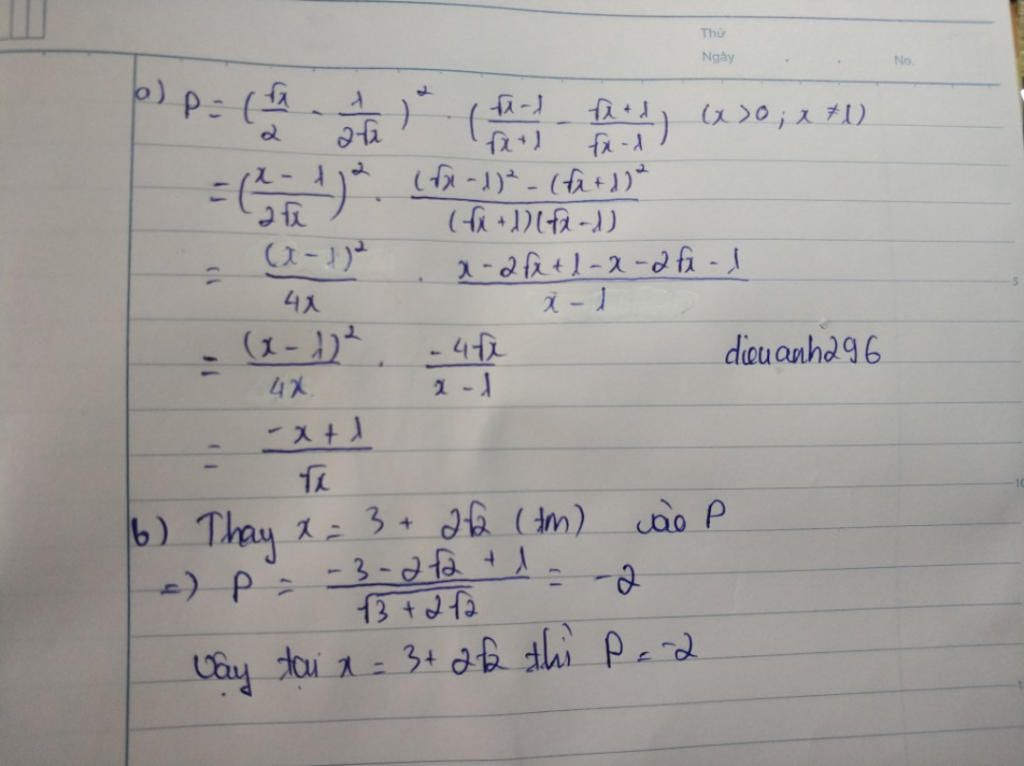 Thứ
Ngày . . No.
a) P = (√x/2 - 1/2√x)² . (√x-1/√x+1 - √x+1/√x-1) (x>0; x≠1)
= (x-1/2√x)² . (√x-1)² - (√x+1)²/(√x+1)(√x-1)
= (x-1)²/4x . x-2√x+1-x-2√x-1/x-1
= (x-1)²/4x . -4√x/x-1
dieuanh296
= -x+1/√x
b) Thay x = 3 + 2√2 (tm) vào P
=) P = -3-2√2+1/√3+2√2 = -2
Vậy tại x = 3+2√2 thì P = -2